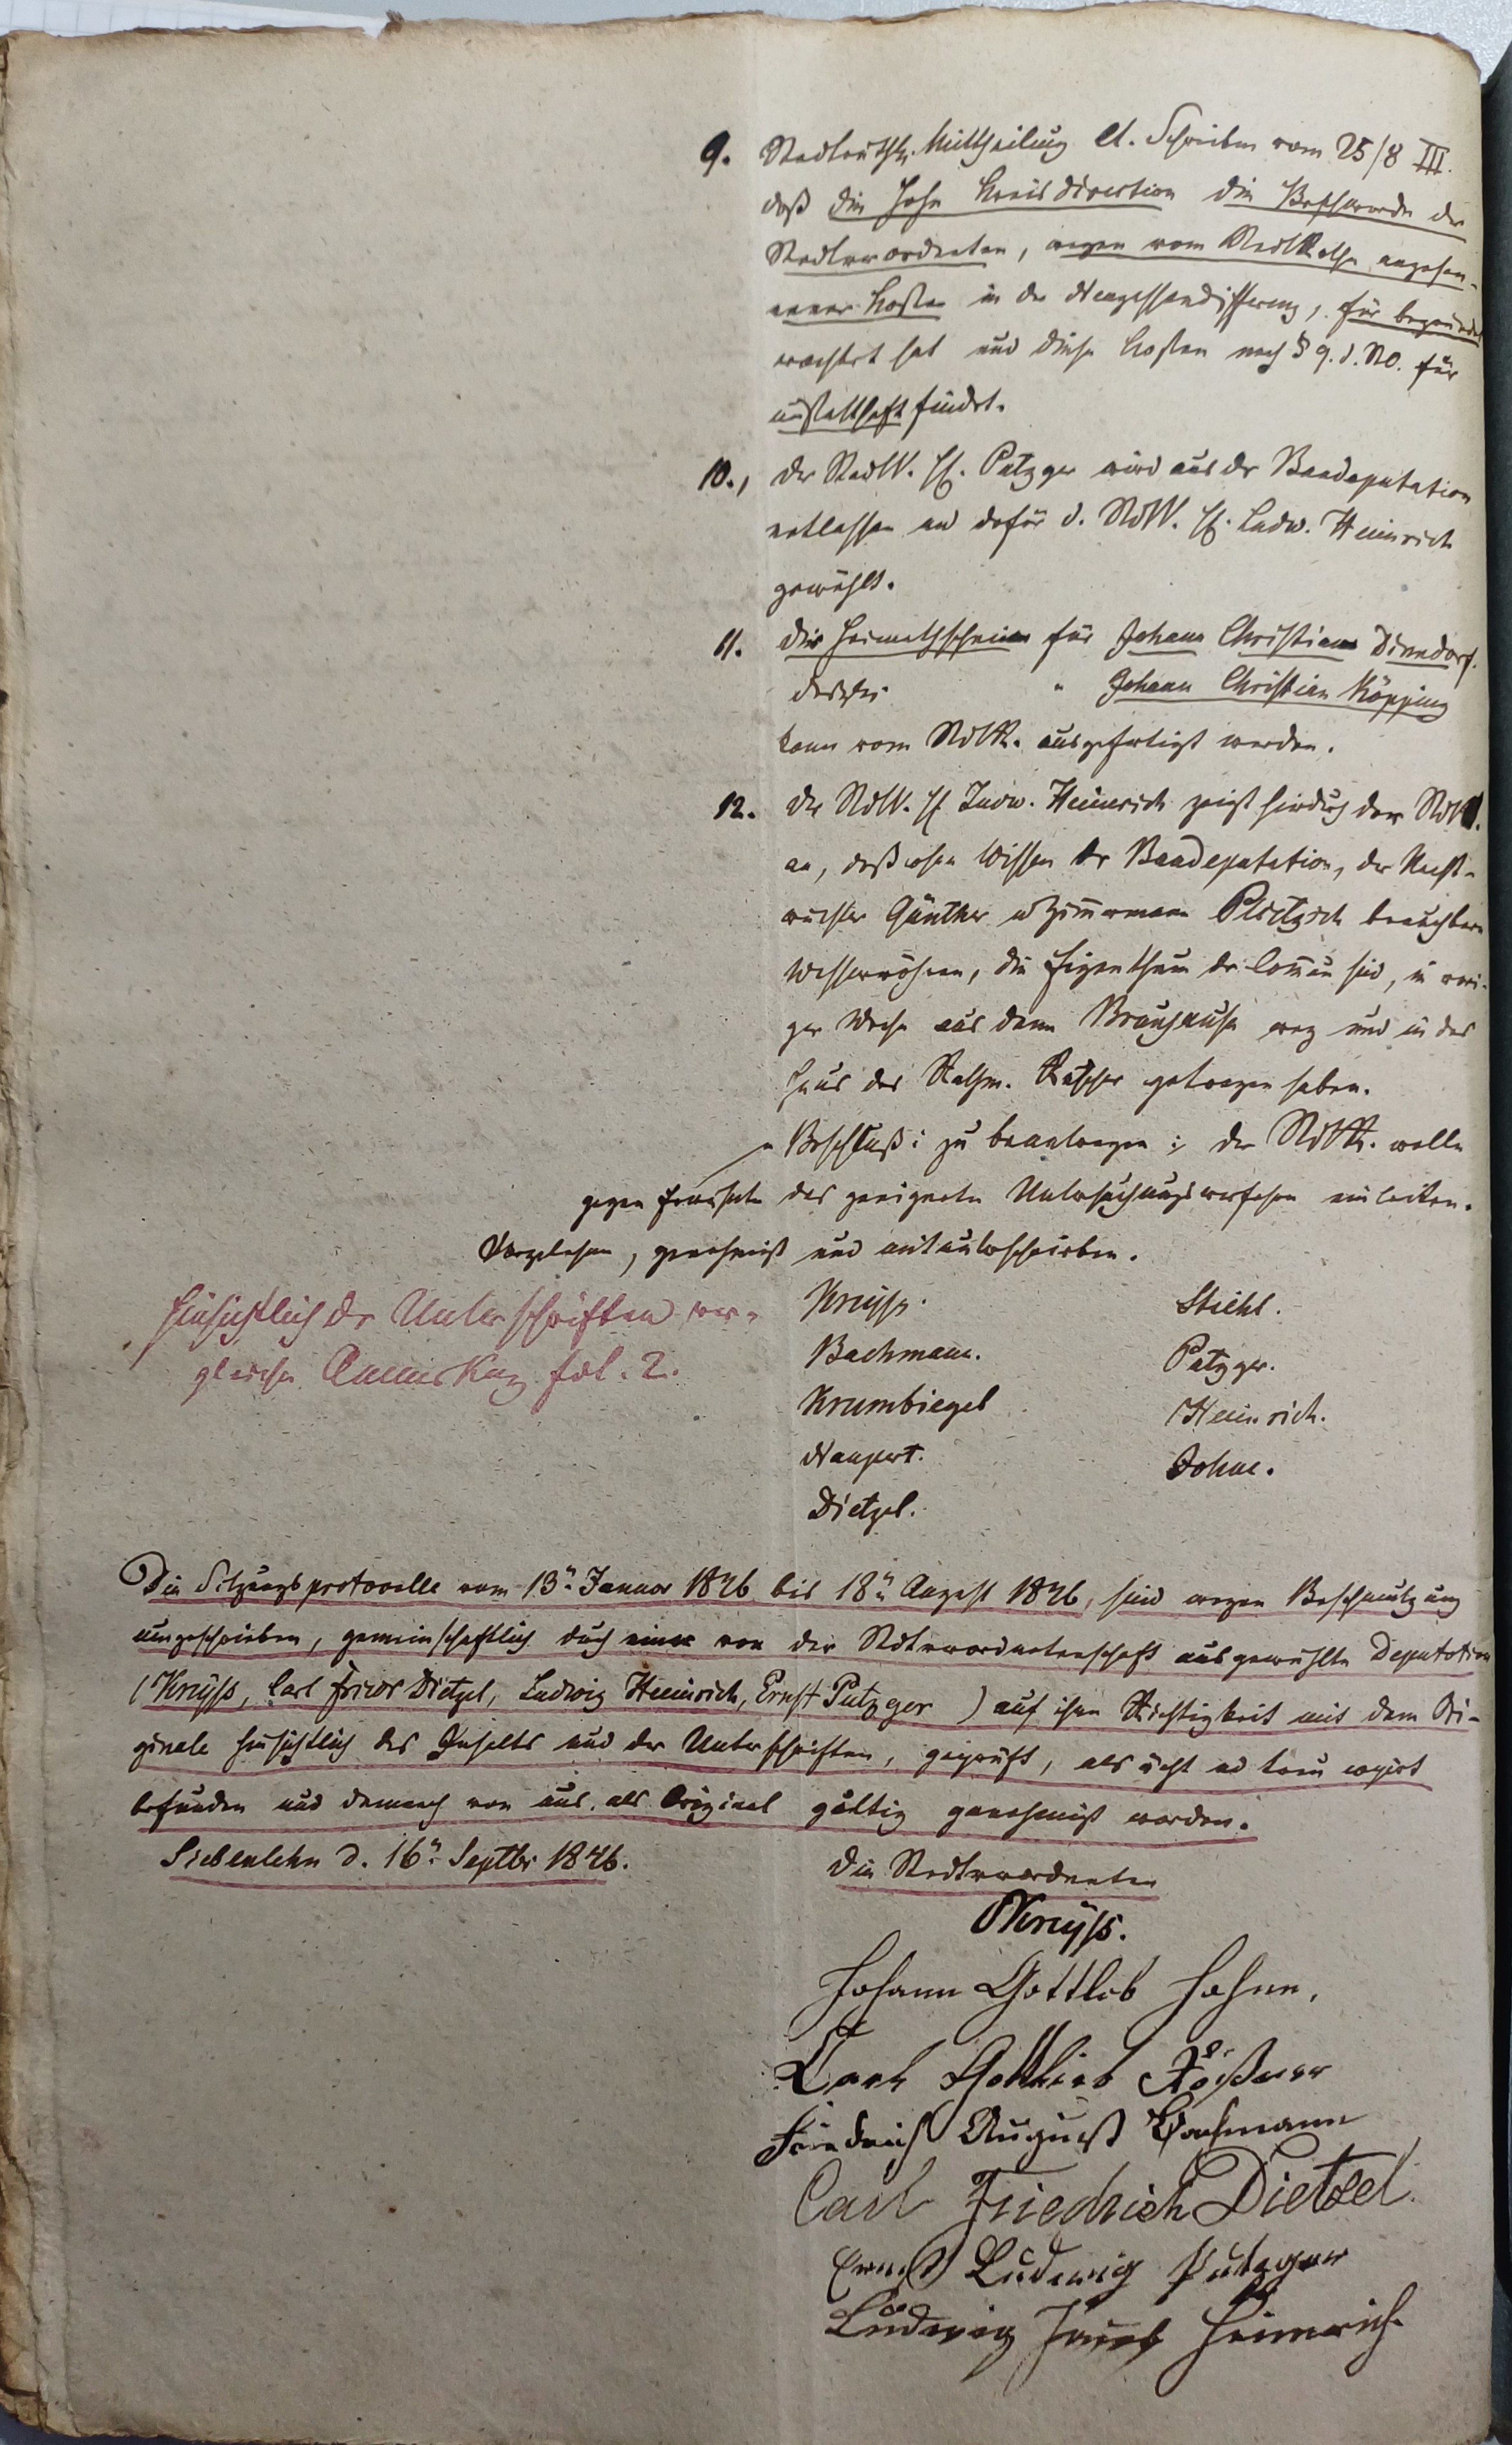 9. Stadträthl. Mittheilung lt. Schreiben vom 25/8 III.
daß die hohe Kreisdirection die Beschwerde der
Stadtverordneten, wegen vom Stadtrathe angeson-
nener Kosten in der differenz, für begründet
erachtet hat und diese Kosten nach § 9. d. StO. für
unstatthaft findet.
10., der StadtV. H. Putzger wird aus der Baudeputation
entlassen und dafür d. StdtV. H. Ludw. Heinrich
gewählt.
11. die Heimathscheine für Johann Christian Dirndorf.
desgl. " Johann Christian Köpping
kann vom StdtR. ausgefertigt werden.
12. der StdtV. H. Ludw. Heinrich zeigt hierdurch den StdtV.
an, daß ohne Wissen der Baudeputation, der
Günther u Zimmermann Plietzsch brauchbare
Wasserröhren, die Eigenthum der Comun sind, in vori-
ger Woche aus dem Brauhause weg und in das
Haus des Rathm. Rascher getragen haben.
Beschluß: zu beantragen: der StdtR. wolle
gegen das geeignete Untersuchungsverfahren einleiten.
Vorgelesen, genehmigt und mitunterschrieben.
Kreyss. Stiehl.
Bachmann. Putzger.
Krumbiegel Heinrich.
Naupert. Johne.
Dietzel.
Hinsichtlich der Unterschriften ver-
gleiche Anmerkung fol. 2.
Die Sitzungsprotocolle vom 13n. Januar 1846 bis 18n. August 1846, sind wegen Beschmutzung
umgeschrieben, gemeinschaftlich durch eine von der Stdtverordnetenschaft ausgewählte Deputation
(Kreyss, Carl Friedr Dietzel, Ludwig Heinrich, Ernst Putzger) auf ihre Richtigkeit mit dem Ori-
ginale hinsichtlich des Inhalts und der Unterschriften, geprüft, als ächt und treu copirt
befunden und demnach von uns, als Original gültig genehmigt worden.
Siebenlehn d. 16n. Septbr 1846.
die Stadtverordneten
Kreyss.
Johann Gottlob Johne.
Carl Gottlieb Rößner
Friedrich August Bachmann
Carl Friedrich Dietzel.
Ernst Ludwig Putzger
Ludwig Heinrich